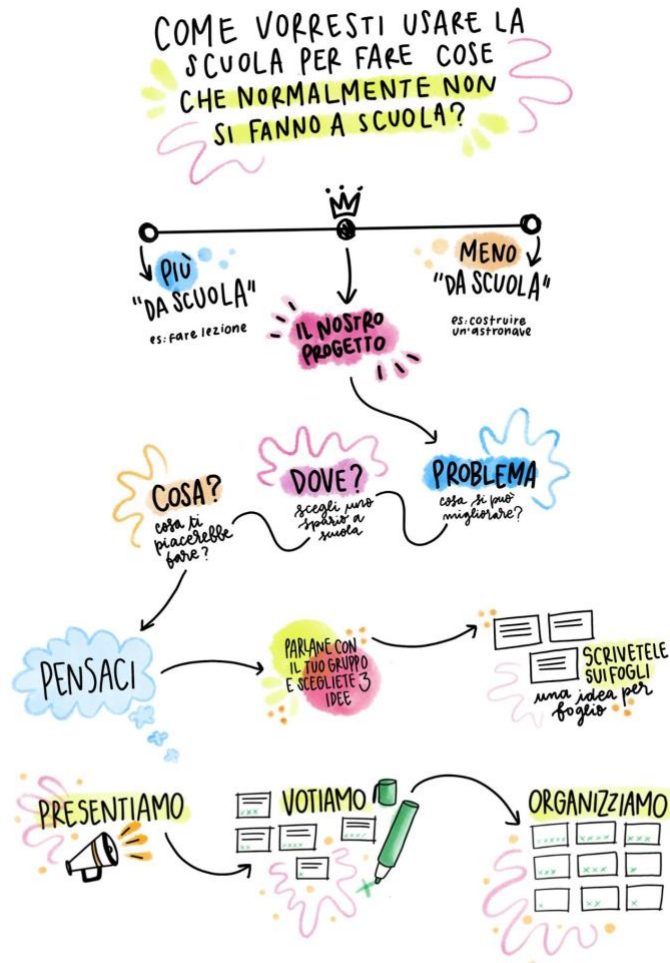 COME VORRESTI USARE LA
SCUOLA PER FARE COSE
CHE NORMALMENTE NON
SI FANNO A SCUOLA?
PIÙ
"DA SCUOLA"
es: fare lezione
MENO
"DA SCUOLA"
es: costruire
un'astronave
IL NOSTRO
PROGETTO
PROBLEMA
cosa si può
migliorare?
DOVE?
scegli uno
spazio a
scuola
COSA?
cosa ti
piacerebbe
fare?
PENSACI
PARLANE CON
IL TUO GRUPPO
E SCEGLIETE 3
IDEE
SCRIVETELE
SUI FOGLI
una idea per
foglio
PRESENTIAMO
VOTIAMO
ORGANIZZIAMO